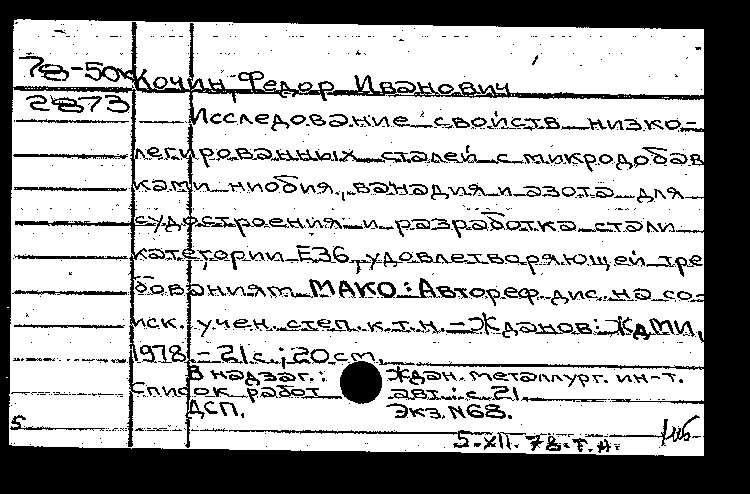 78-50к Кочин, Федор Иванович
2873
Исследование свойств низко-
легированных сталей с микродобав
ками ниобия, ванадия и азота для
судостроения и разработка стали
категории Е36, удовлетворяющей тре
бованиям МАКО: Автореф. дис. на со-
иск. учен. степ. к.т.н. - Жданов: ЖдМИ,
1978. - 21 с.; 20 см.
В надзаг.: Ждан. металлург. ин-т.
Список работ авт.: с. 21.
ДСП. Экз. N68.
5
5.XII.78. Т.А.